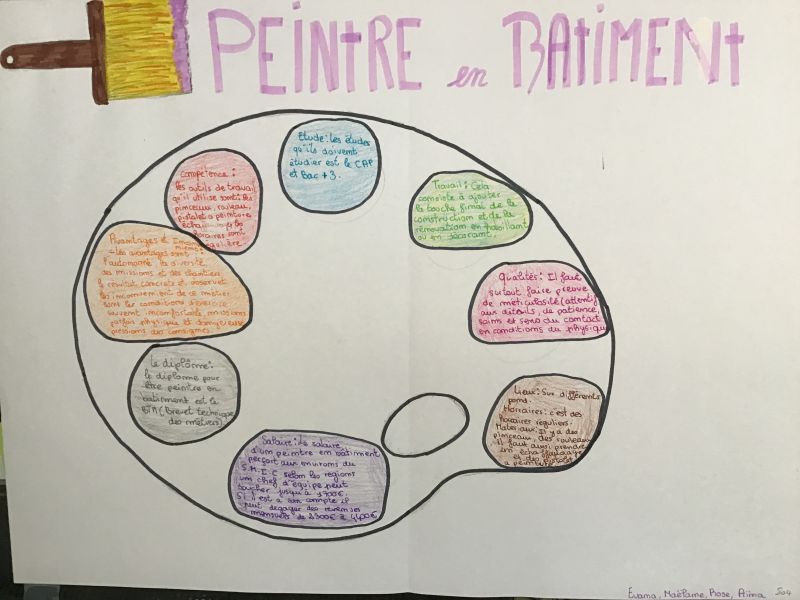 PEINTRE en BATIMENT
Etude: les études
qu'ils doivent
étudier est le CAP
et Bac +3.
Compétence :
les outils de travail
qu'il utilise sont: les
pinceaux, rouleau,
pistolet a peinture
horaires sont
Travail: Cela
consiste à ajouter
la touche final de la
construction et de la
rénovation en habillant
ou en décorant
Avantages et
- les avantages sont
l'autonomie, la diversité
des missions et des chantiers
le résultat concret et observer
les inconvenient de ce métier
sont les conditions d'exercice
souvent inconfortable, missions
parfois physique et dangereuse
pressions des consignes.
Qualités: Il faut
surtout faire preuve
de méticulosité (attentif
aux détails, de patience,
soins et sens du contact
en conditions du physique
Le diplôme:
le diplome pour
être peintre en
batiment est le
BTM (brevet technique
des métiers)
Lieux: Sur différents
Horraires: c'est des
horaires réguliers.
Materiaux: Il y a des
pinceaux, des rouleaux
Il faut aussi prendre
un échaffaudage
et des pistolets
a peinture
Salaire: Le salaire
d'un peintre en bâtiment
perçoit aux environs du
S.M.I.C selon les régions
um chef d'équipe peut
toucher jusqu'à 1700€.
Si il est a son compte il
peut dégager des revenues
mensuels de 2300€ à 4400€
Evama, Maëlame, Rose, Aima 504